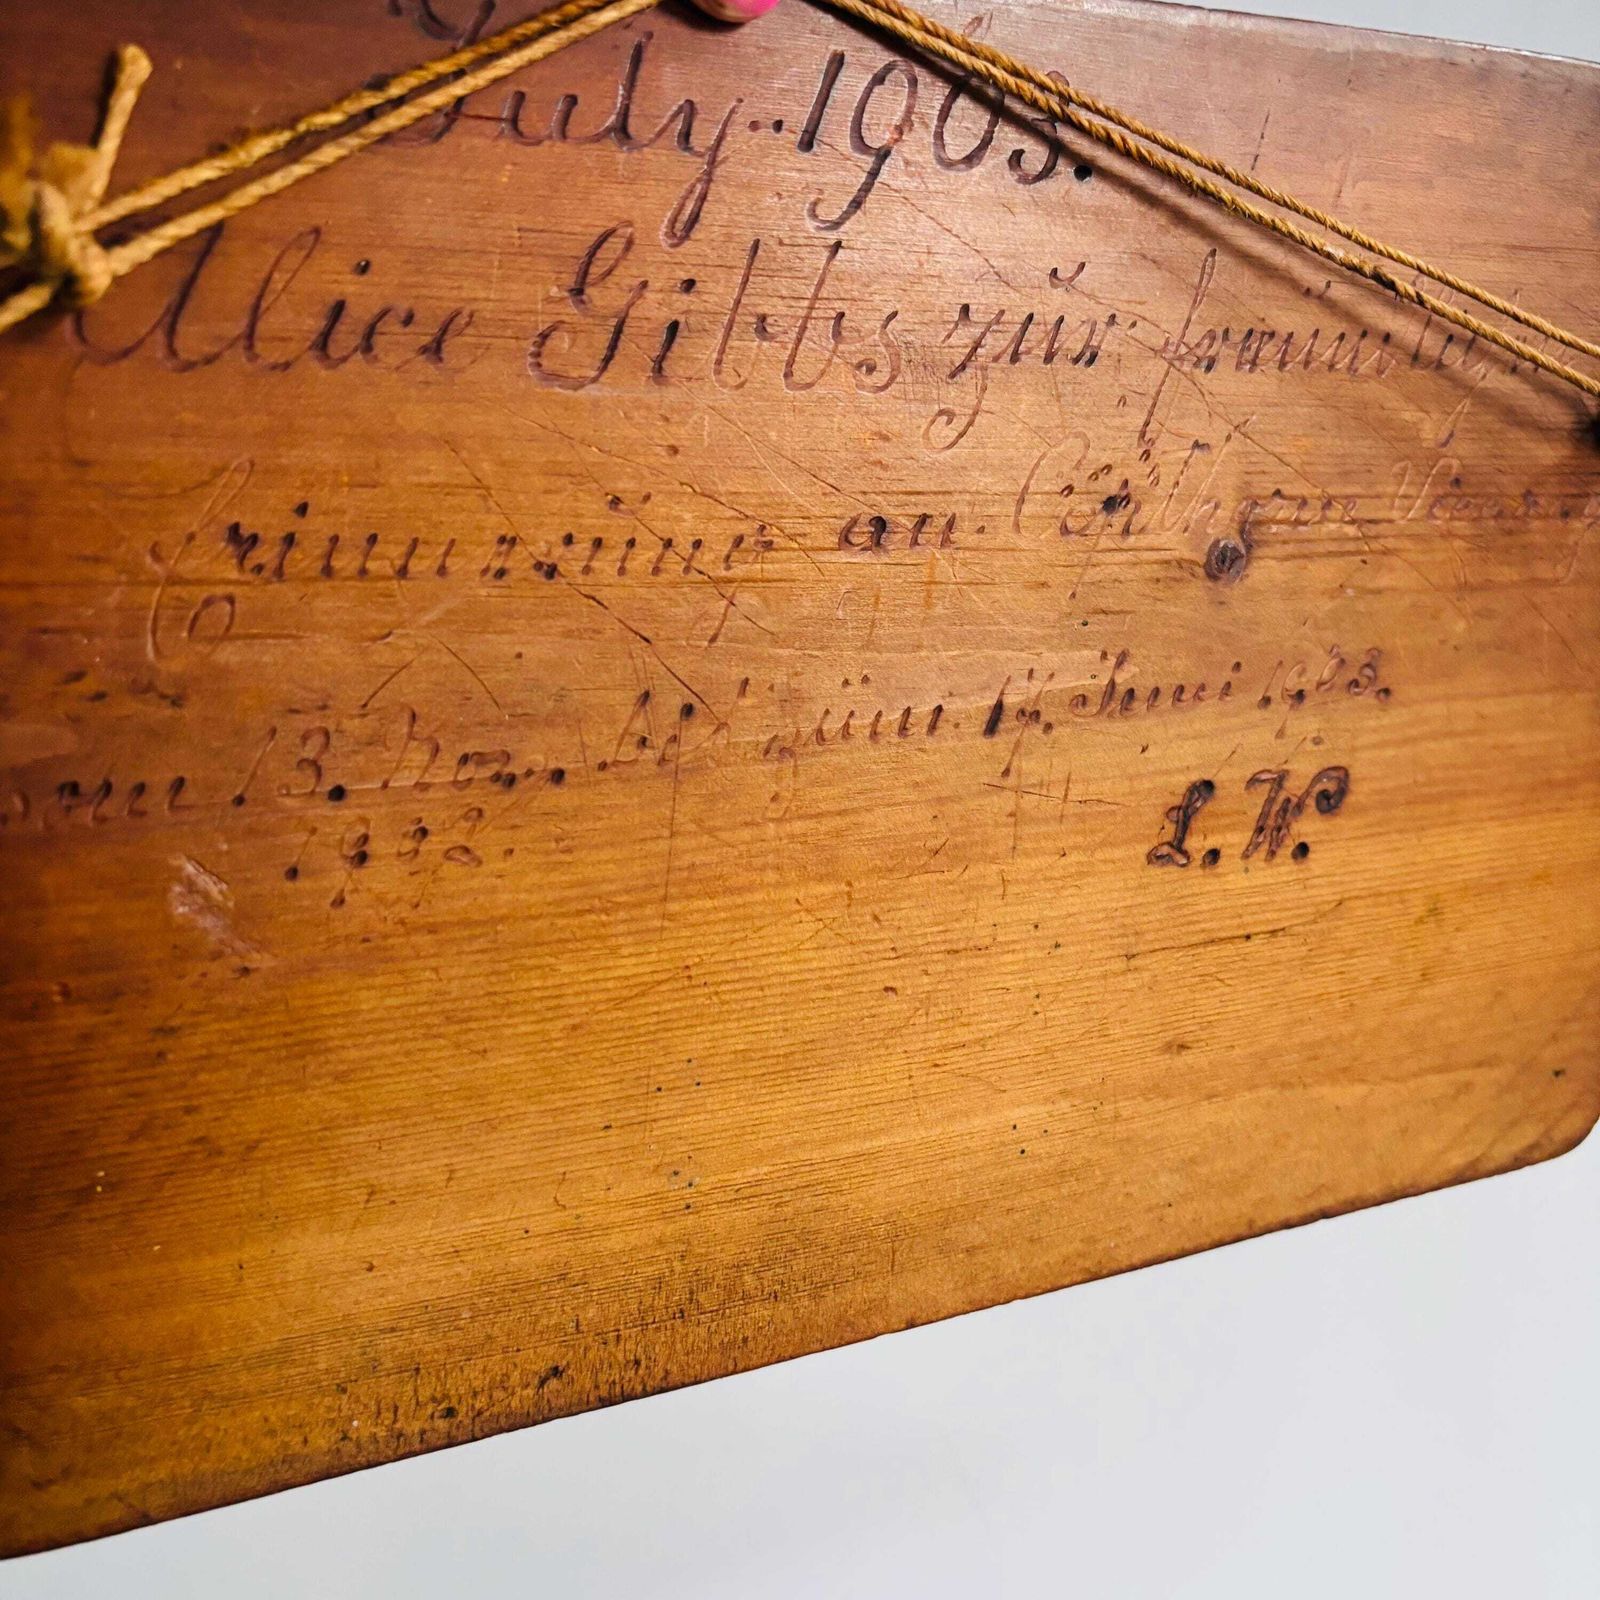 July. 1903.
Alice Gibbs zur freundlichen
Erinnerung an Copthorne Vicarage
vom 13. Nov. bis zum 17. Juni 1903.
1902.
L. W.